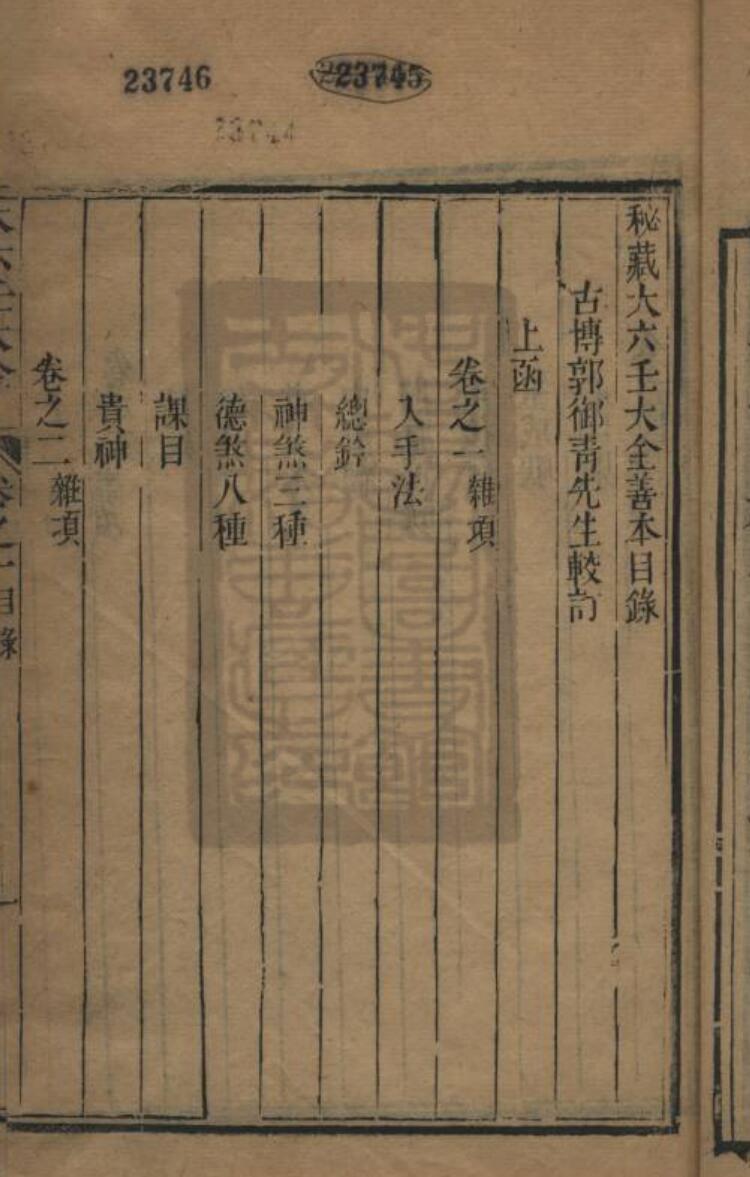 23746
23745
23744
秘藏大六壬大全善本目錄
古博郭御靑先生較訂
上函
卷之一雜項
入手法
總鈐
神煞三種
德煞八種
課目
貴神
卷之二雜項
大六壬大全 卷之一目錄